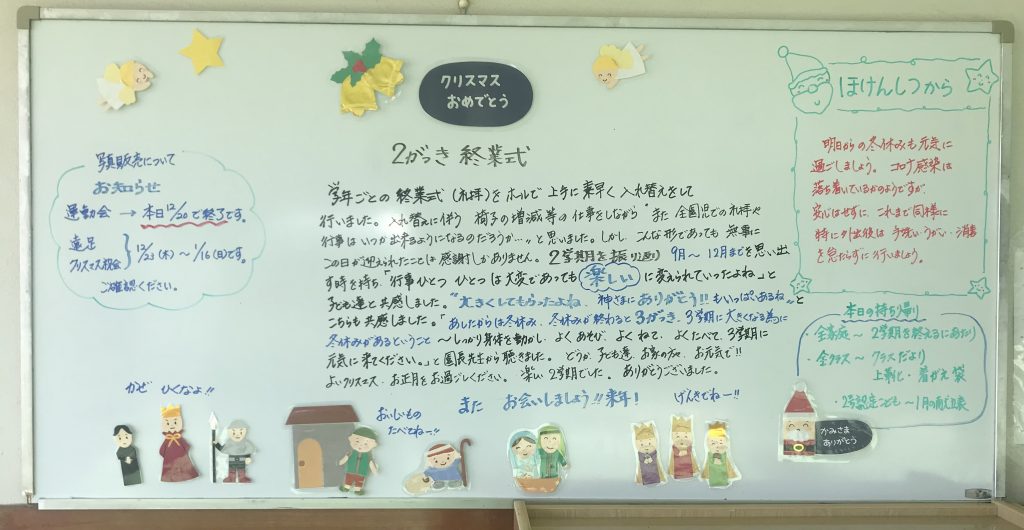 クリスマス
おめでとう
2がっき 終業式
写真販売について
お知らせ
運動会 → 本日12/20で終了です。
遠足
クリスマス祝会
12/23(木)〜1/16(日)です。
ご確認ください。
学年ごとの 終業式(礼拝)をホールで 上手に素早く入れ替えをして
行いました。入れ替えに伴う 椅子の増減等の仕事をしながら"また 全園児での礼拝や
行事は いつか出来るようになるのだろうか…"と思いました。しかし、こんな形であっても 無事に
この日が迎えられたことは 感謝しかありません。2学期を振り返り 9月〜12月までを思い出
す時を持ち、「行事ひとつひとつは大変であっても 楽しい に変えられていったよね」と
子ども達と共感しました。"大きくしてもらったよね、神さまにありがとう!!もいっぱいあるね"と
こちらも共感しました。「あしたからは冬休み、冬休みが終わると3がっき、3学期に大きくなる為に
冬休みがあるということ 〜しっかり身体を動かし、よくあそび、よくねて、よくたべて、3学期に
元気に来てください。」と園長先生から聴きました。どうか、子ども達、お家の方々、お元気で!!
よいクリスマス・お正月をお過ごしください。楽しい2学期でした。ありがとうございました。
また お会いしましょう!!来年!
かぜ ひくなよ!!
おいしいもの
たべてねー!!
げんきでねー!!
ほけんしつから
明日からの冬休みも元気に
過ごしましょう。コロナ感染は
落ち着いているかのようですが、
安心はせずに、これまで同様に
特に外出後は 手洗い・うがい・消毒
を怠らずに行いましょう。
本日の持ち帰り
・全家庭〜2学期を終えるにあたり
・全クラス〜クラスだより
上靴・着がえ袋
・2号認定こども〜1月の献立表
かみさま
ありがとう